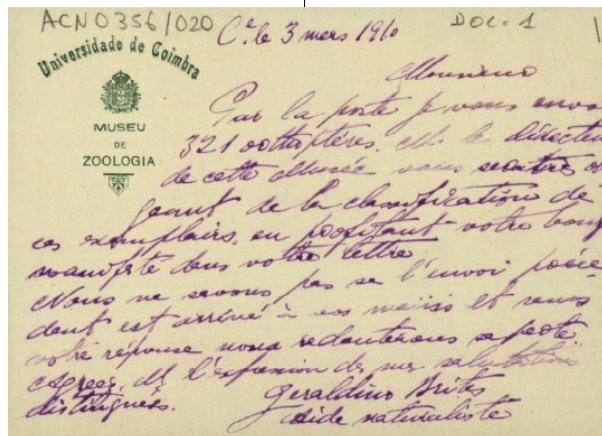 ACN0356/020
DOC. 1
Universidade de Coimbra
MUSEU
DE
ZOOLOGIA
C.e le 3 mars 1910
Monsieur
Par la poste je vous envo
321 orthoptères. M. le directeu
de cette Musée vous
geant de la classification de
ces exemplairs, en profitant votre bonp
manifeste dans votre lettre
Nous ne savons pas se l'envoi précé
dent est arrivé à vos mains et sans
votre réponse nous redouterons sa perte
Agreez, M, l'expression de mes salutations
distingués.
Geraldino Brites
aide naturaliste